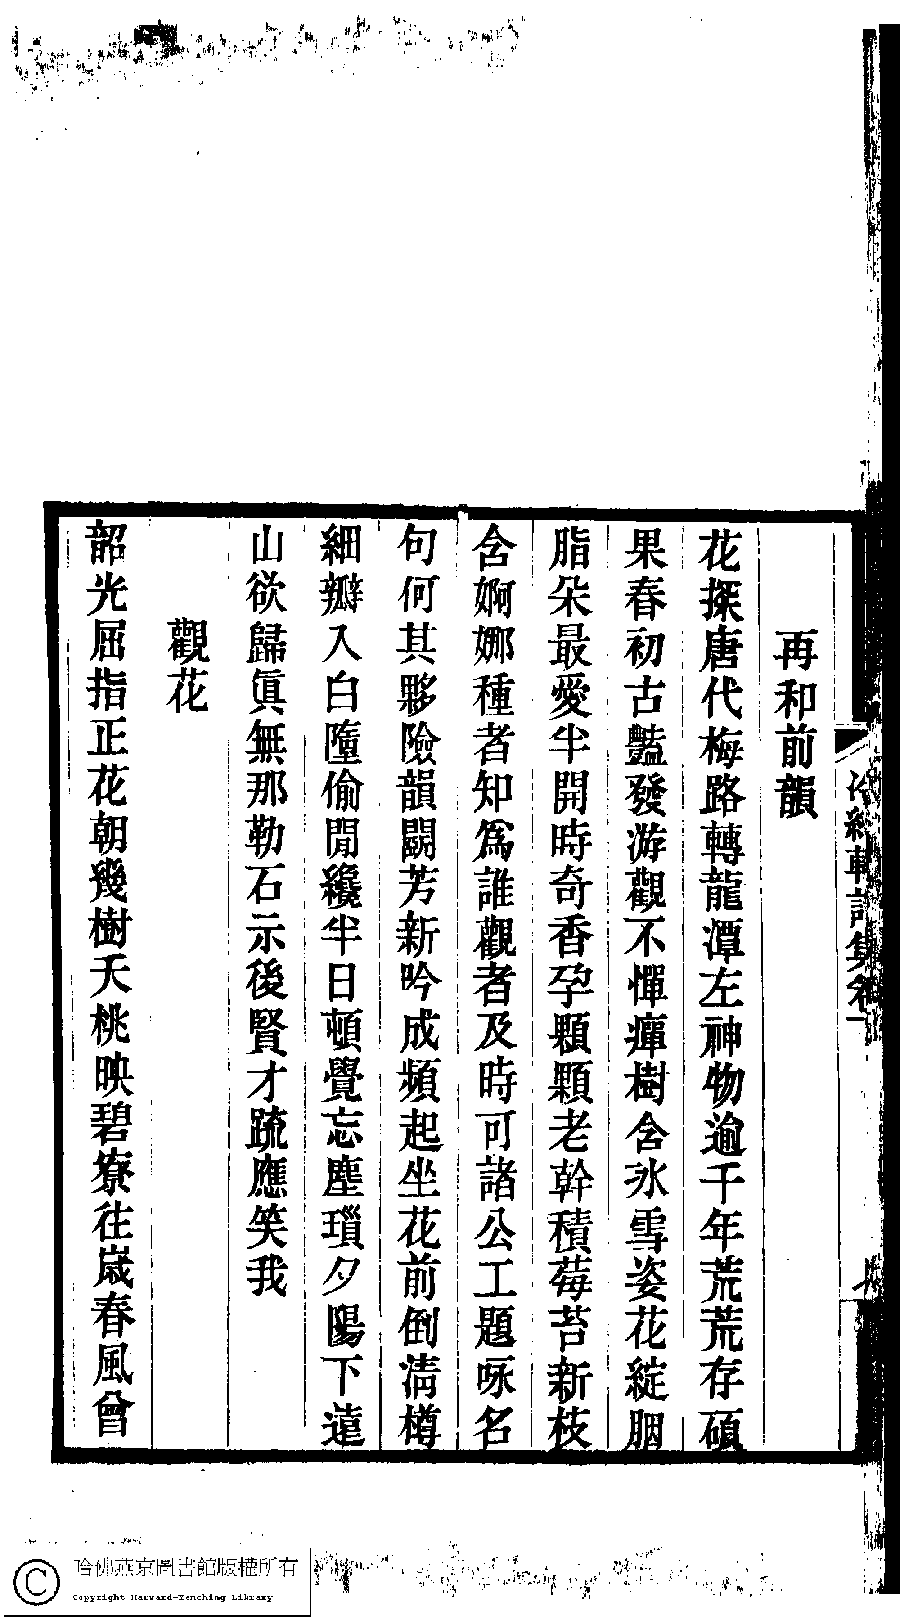 再和前韻
花探唐代梅路轉龍潭左神物逾千年荒荒存碩
果春初古豔發游觀不憚癉樹含氷雪姿花綻胭
脂朵最愛半開時奇香孕顆顆老幹積莓苔新枝
含婀娜種者知爲誰觀者及時可諸公工題咏名
句何其夥險韻鬭芳新吟成頻起坐花前倒淸樽
細瓣入白墮偷閒纔半日頓覺忘塵瑣夕陽下遠
山欲歸眞無那勒石示後賢才疏應笑我
觀花
韶光屈指正花朝幾樹夭桃映碧寮往歲春風曾
軒詩集卷一
哈佛燕京圖書館版權所有
Copyright Harvard-Yenching Library